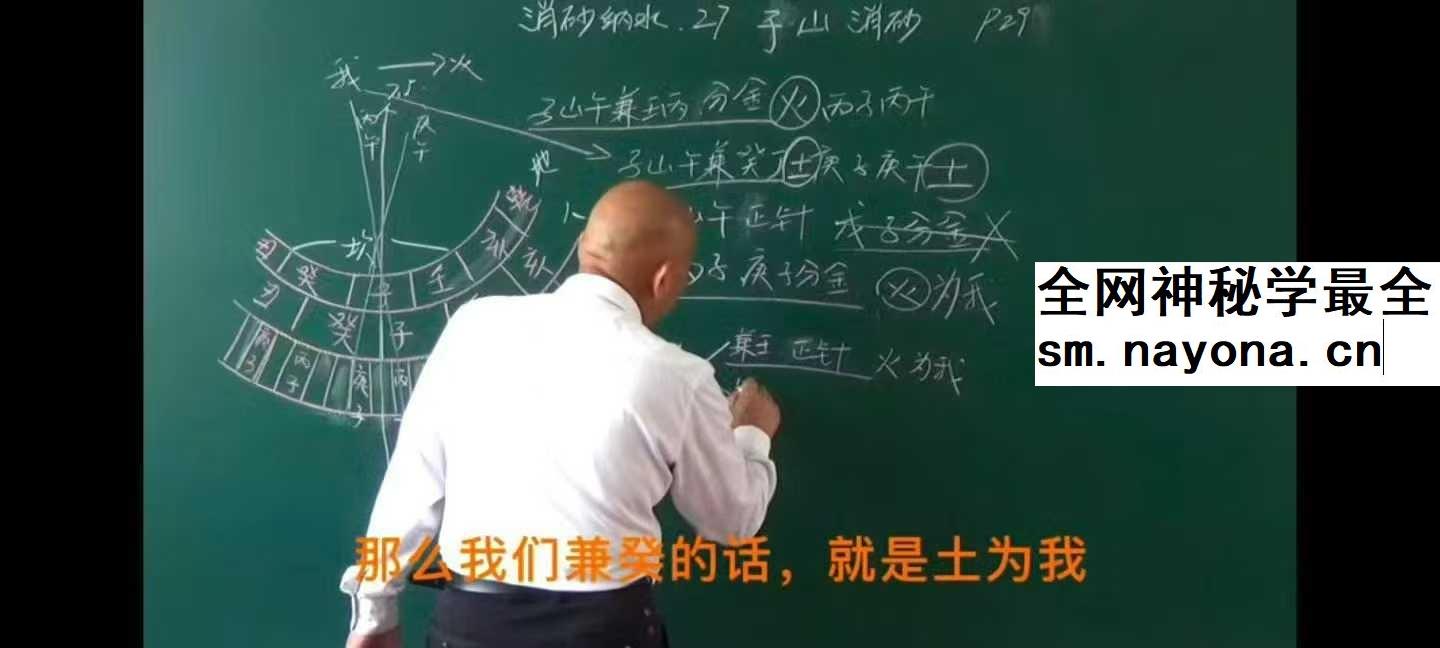 消砂纳水.27 子山消砂 P29
我 →火
7.5.
丙午
庚午
子山午兼壬丙分金火丙子丙午
子山午兼癸丁土庚子庚午土
山午正针 戊子分金
子庚子分金 火为我
兼壬 正针 火为我
坎
丑 癸 子 壬 亥 乾
丑 癸 子 亥
丙子 庚子 丙
全网神秘学最全
sm.nayona.cn
那么我们兼癸的话，就是土为我